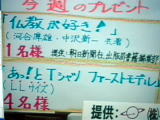 今週のプレゼント
「仏教が好き!」
(河合隼雄・中沢新一 共著)
1名様 提供・朝日新聞社 出版局書籍編集部
あっ!とTシャツ ファーストモデル
(LLサイズ)
4名様
提供: